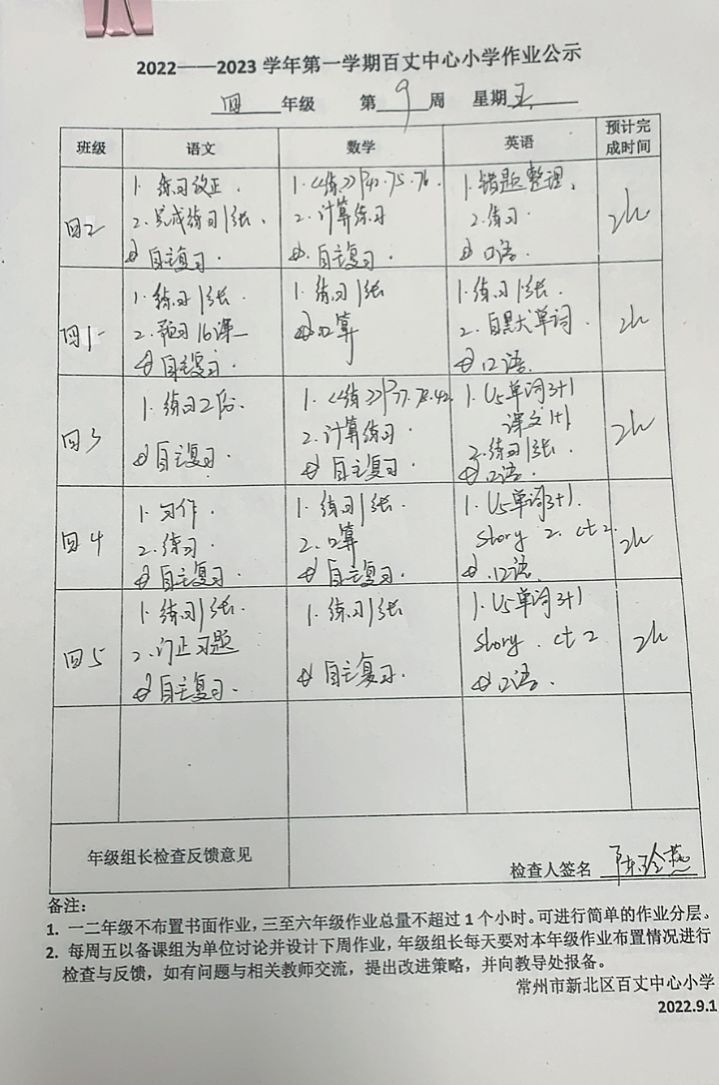 2022——2023 学年第一学期百丈中心小学作业公示
四 年级 第 9 周 星期 五
班级 语文 数学 英语 预计完成时间
四2
1. 练习改正.
2. 完成练习1张.
自主复习.
1.《练》P42.75.76.
2. 计算练习
自主复习.
1. 错题整理.
2. 练习.
口语.
2h
四1
1. 练习1张.
2. 预习16课
自主复习.
1. 练习1张
口算
1. 练习1张.
2. 自默单词.
口语.
2h
四3
1. 练习2张.
自主复习.
1.《练》P77.78.42.
2. 计算练习.
自主复习.
1. U5单词3+1
课文1+1
2. 练习1张.
口语.
2h
四4
1. 习作.
2. 练习.
自主复习.
1. 练习1张.
2. 口算
自主复习.
1. U5单词3+1.
story 2. ct2.
口语.
2h
四5
1. 练习1张.
2. 订正习题
自主复习.
1. 练习1张
自主复习.
1. U5单词3+1
story. ct2
口语.
2h
年级组长检查反馈意见
检查人签名 陈玲燕
备注:
1. 一二年级不布置书面作业，三至六年级作业总量不超过 1 个小时。可进行简单的作业分层。
2. 每周五以备课组为单位讨论并设计下周作业，年级组长每天要对本年级作业布置情况进行
检查与反馈，如有问题与相关教师交流，提出改进策略，并向教导处报备。
常州市新北区百丈中心小学
2022.9.1